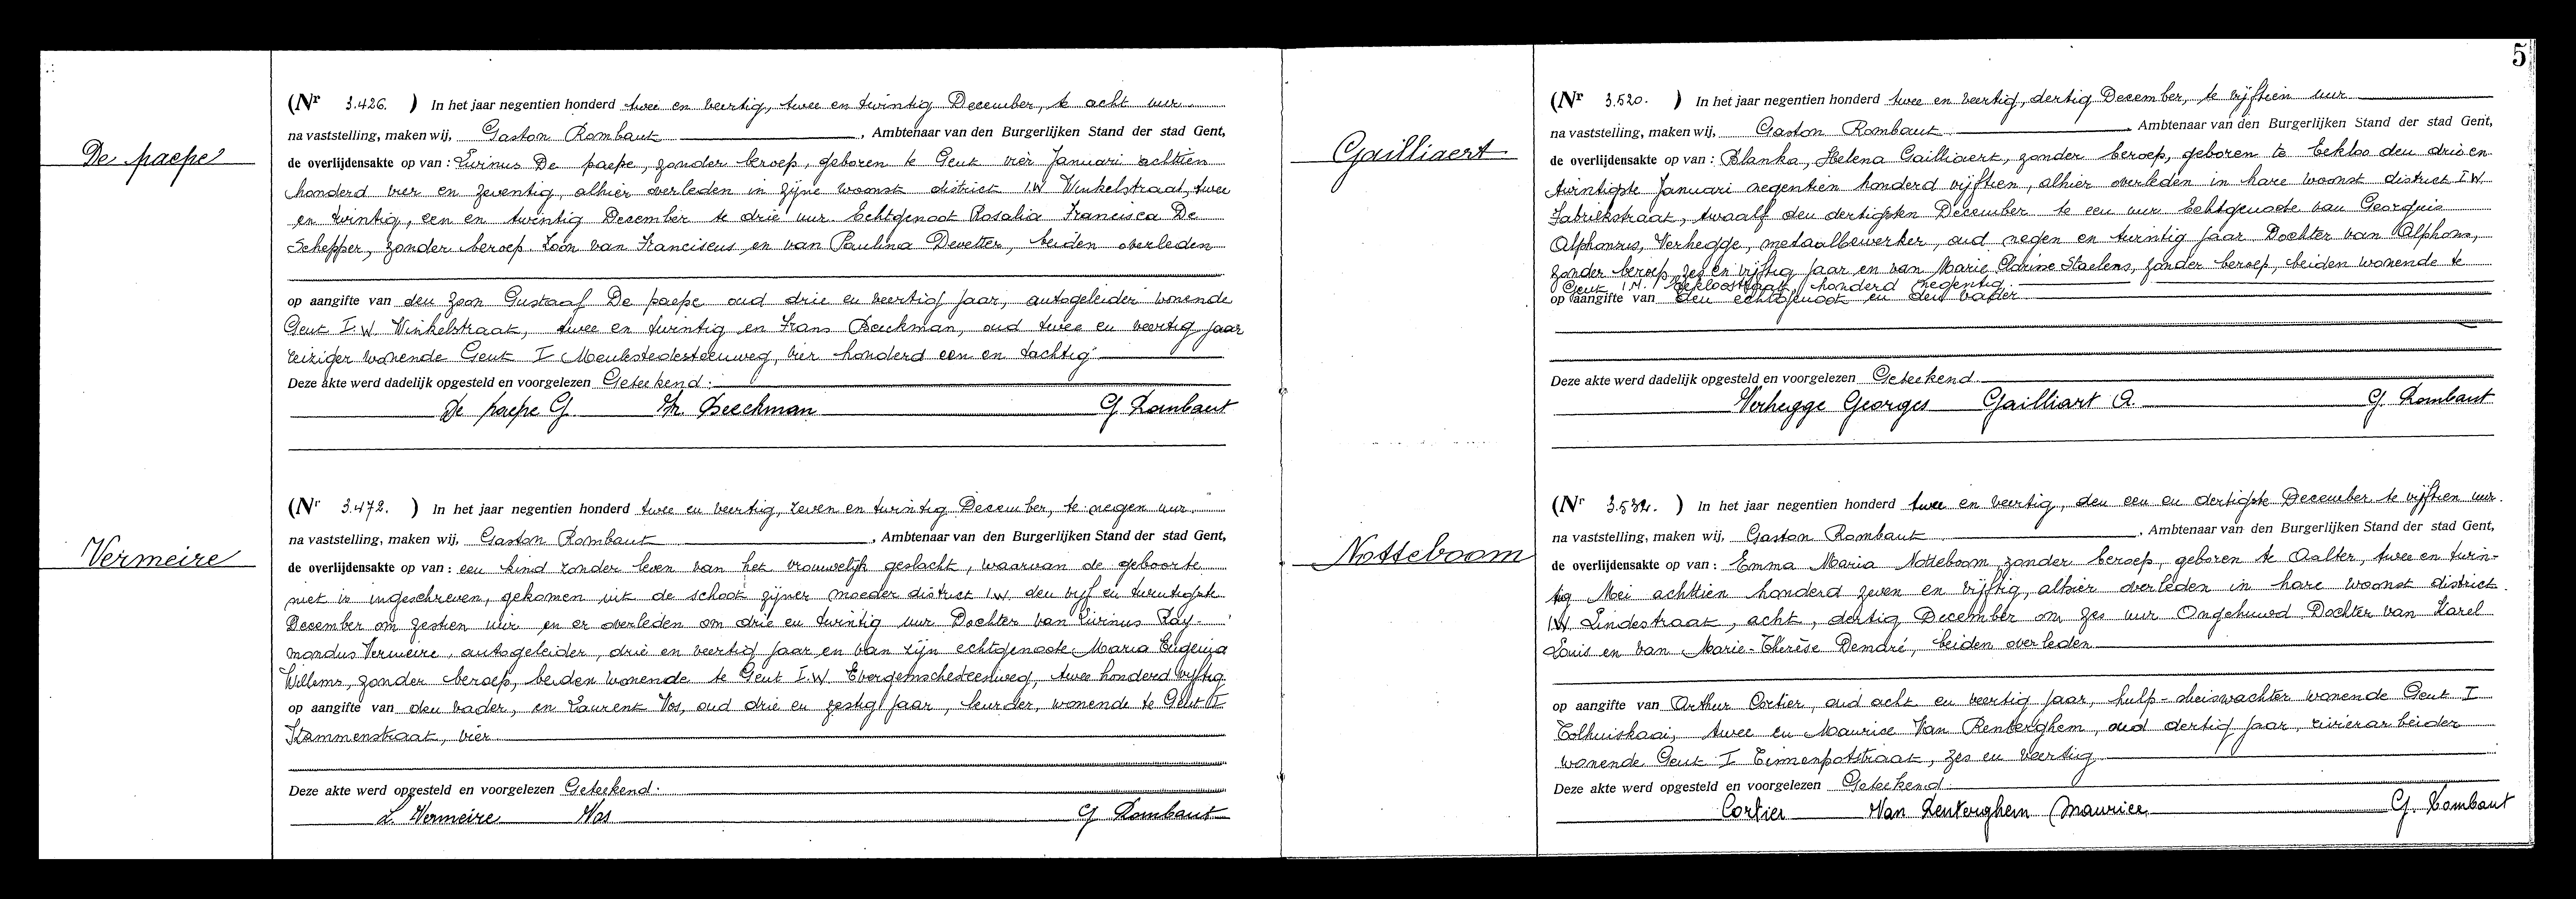 De paepe
(Nr 3.426. ) In het jaar negentien honderd twee en veertig, twee en twintig December, te acht uur
na vaststelling, maken wij, Gaston Rombaut, Ambtenaar van den Burgerlijken Stand der stad Gent,
de overlijdensakte op van: Livinus De paepe, zonder beroep, geboren te Gent vier Januari achttien
honderd vier en zeventig, alhier overleden in zijne woonst district I.W Winkelstraat, twee
en twintig, een en twintig December te drie uur. Echtgenoot Rosalia Francisca De
Schepper, zonder beroep. Zoon van Franciscus en van Paulina Devetter, beiden overleden
op aangifte van den zoon Gustaaf De paepe oud drie en veertig jaar, autogeleider wonende
Gent I.W Winkelstraat, twee en twintig en Frans Beeckman, oud twee en veertig jaar
reiziger wonende Gent I Meulestedesteenweg, vier honderd een en tachtig
Deze akte werd dadelijk opgesteld en voorgelezen Geteekend:
De paepe G. Fr. Beeckman G Rombaut
Vermeire
(Nr 3.472. ) In het jaar negentien honderd twee en veertig, zeven en twintig December, te negen uur.
na vaststelling, maken wij, Gaston Rombaut, Ambtenaar van den Burgerlijken Stand der stad Gent,
de overlijdensakte op van: een kind zonder leven van het vrouwelijk geslacht, waarvan de geboorte
niet is ingeschreven, gekomen uit de schoot zijner moeder district I.W. den vijf en twintigste
December om zestien uur en er overleden om drie en twintig uur Dochter van Livinus Ray-
mondus Vermeire, autogeleider, drie en veertig jaar en van zijn echtgenoote Maria Eugenia
Willems, zonder beroep, beiden wonende te Gent I.W Evergemschesteenweg, twee honderd vijftig
op aangifte van den vader, en Laurent Vos, oud drie en zestig jaar, leurder, wonende te Gent I
Stammenstraat, vier
Deze akte werd opgesteld en voorgelezen Geteekend.
L. Vermeire Vos G Rombaut
5
Gailliaert
(Nr 3.520. ) In het jaar negentien honderd twee en veertig, dertig December, te vijftien uur
na vaststelling, maken wij, Gaston Rombaut, Ambtenaar van den Burgerlijken Stand der stad Gent,
de overlijdensakte op van: Blanka, Helena Gailliaert, zonder beroep, geboren te Eekloo den drie en
twintigste Januari negentien honderd vijftien, alhier overleden in hare woonst district I.W.
Fabriekstraat, twaalf den dertigsten December te een uur Echtgenoote van Georgius
Alphonsus, Verhegge, metaalbewerker, oud negen en twintig jaar Dochter van Alphons,
zonder beroep, zes en vijftig jaar en van Marie Clarine Staelens, zonder beroep, beiden wonende te
Gent I.N. Eekloostraat, honderd negentig
op aangifte van den echtgenoot en den vader
Deze akte werd dadelijk opgesteld en voorgelezen Geteekend
Verhegge Georges Gailliart A. G. Rombaut
Notteboom
(Nr 3.532. ) In het jaar negentien honderd twee en veertig, den een en dertigste December te vijftien uur.
na vaststelling, maken wij, Gaston Rombaut, Ambtenaar van den Burgerlijken Stand der stad Gent,
de overlijdensakte op van: Emma Maria Notteboom zonder beroep, geboren te Aalter, twee en twin-
tig Mei achttien honderd zeven en vijftig, alhier overleden in hare woonst district
I.W Lindestraat, acht, dertig December om zes uur Ongehuwd Dochter van Karel
Louis en van Marie-Thérèse Demdré, beiden overleden
op aangifte van Arthur Cortier, oud acht en veertig jaar, hulp-sluiswachter wonende Gent I
Tolhuiskaai, twee en Maurice Van Renterghem, oud dertig jaar, rivierarbeider
wonende Gent I Eimenpotstraat, zes en veertig
Deze akte werd dadelijk opgesteld en voorgelezen Geteekend.
Cortier Van Renterghem Maurice G. Rombaut